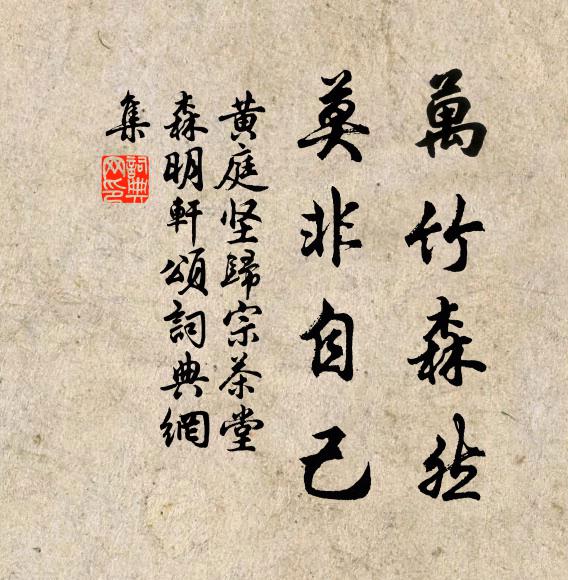 萬竹森然
莫非自己
黄庭坚歸宗茶堂
森明軒頌詞典網
集
詞典网印